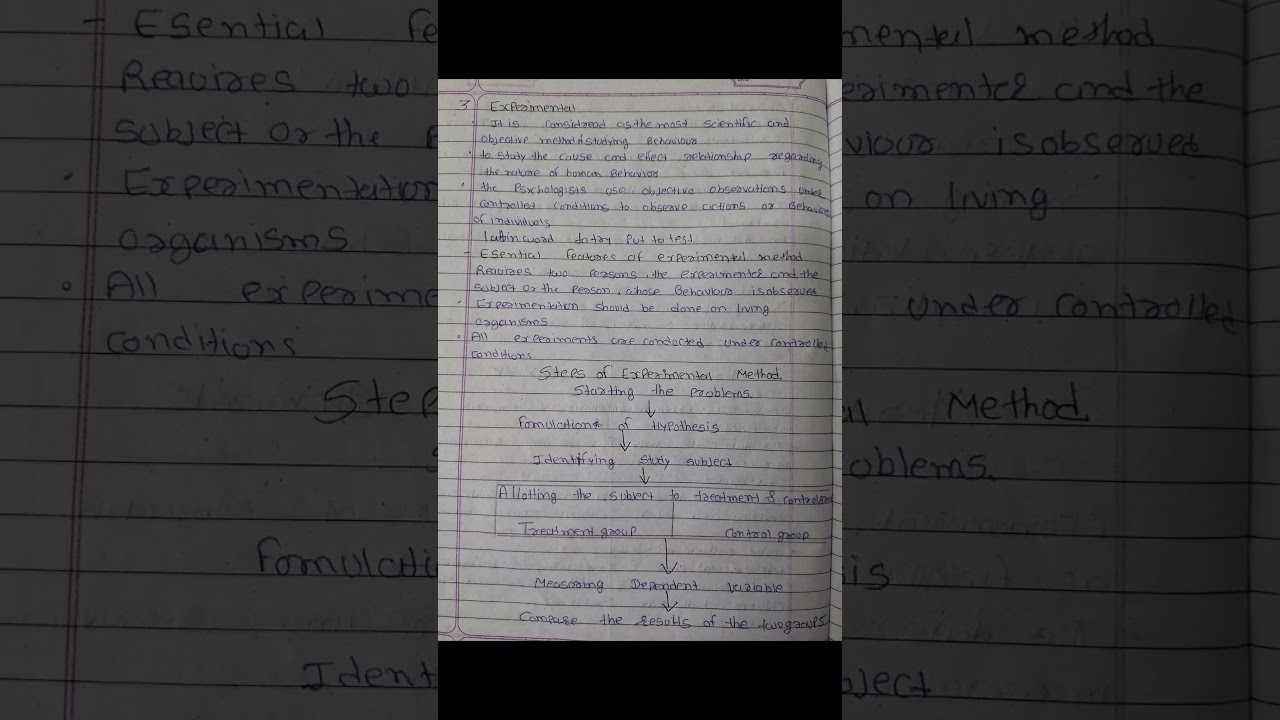 3 Experimental
It is considread as the most scientific and
objective method studying Behaviour
• to study the cause and effect relationship regarding
the nature of human Behavior
• the Pschologists use objective obseravations under
controlled conditions to observe actions or Behaviour
of individuals
Latin word to try Put to test
- Esential features of experimental method
Requires two Persons, the experimenter and the
subject or the Person, whose Behaviour is observed
• Experimentation should be done on living
organisms
• All experiments are conducted under controlled
conditions
Steps of Experimental Method
Starting the Problems.
↓
Fomulation of Hypothesis
↓
Identifying study subject
↓
Allotting the subject to treatment &
Treatment group Control group
↓
Measuring Dependent Variable
↓
Compare the results of the two groups